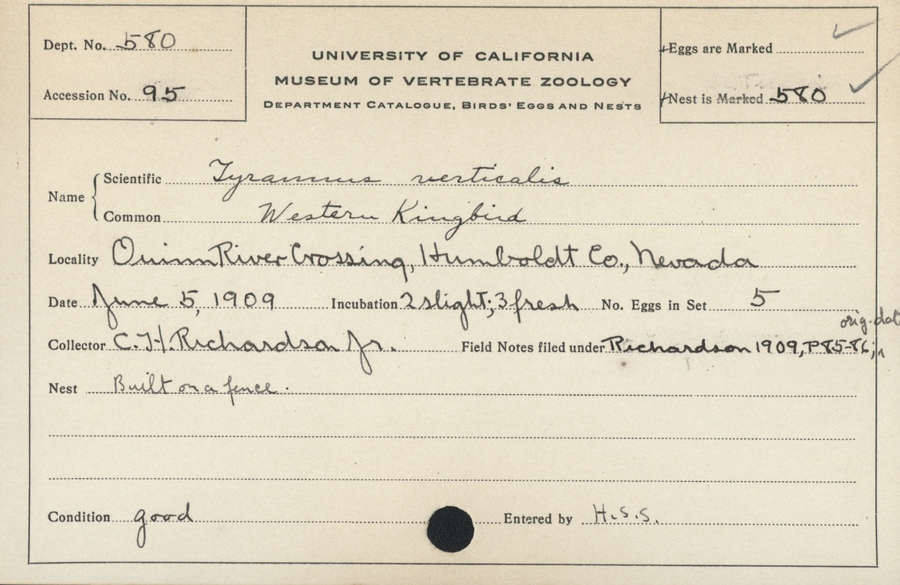 Dept. No. 580
Accession No. 95
UNIVERSITY OF CALIFORNIA
MUSEUM OF VERTEBRATE ZOOLOGY
DEPARTMENT CATALOGUE, BIRDS' EGGS AND NESTS
Eggs are Marked
Nest is Marked 580
Name
Scientific Tyrannus verticalis
Common Western Kingbird
Locality Quinn River Crossing, Humboldt Co., Nevada
Date June 5, 1909 Incubation 2 slight; 3 fresh No. Eggs in Set 5
orig. data
Collector C. H. Richardson Jr. Field Notes filed under Richardson 1909, P 85-86;
Nest Built on a fence.
Condition good Entered by H.S.S.